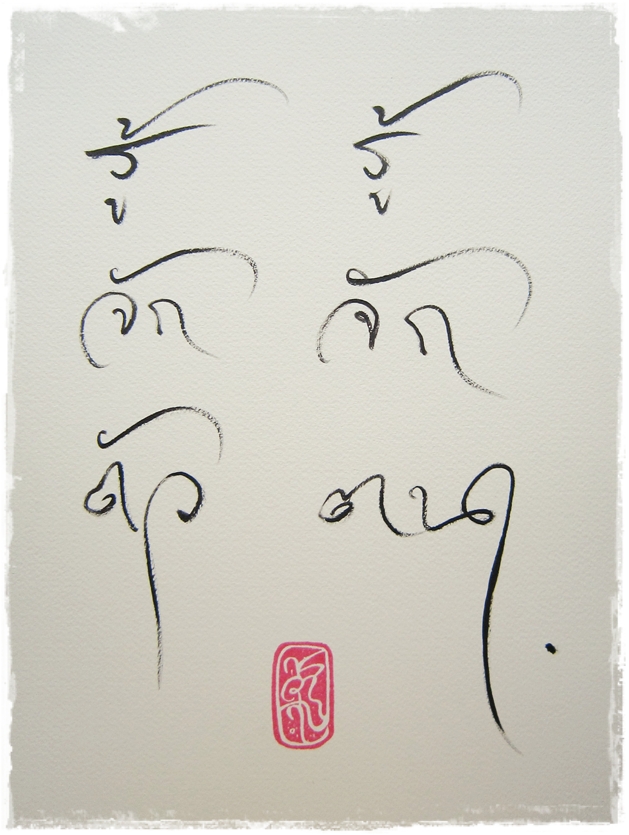 รู้ รู้
จัก จัก
ตัว ตน